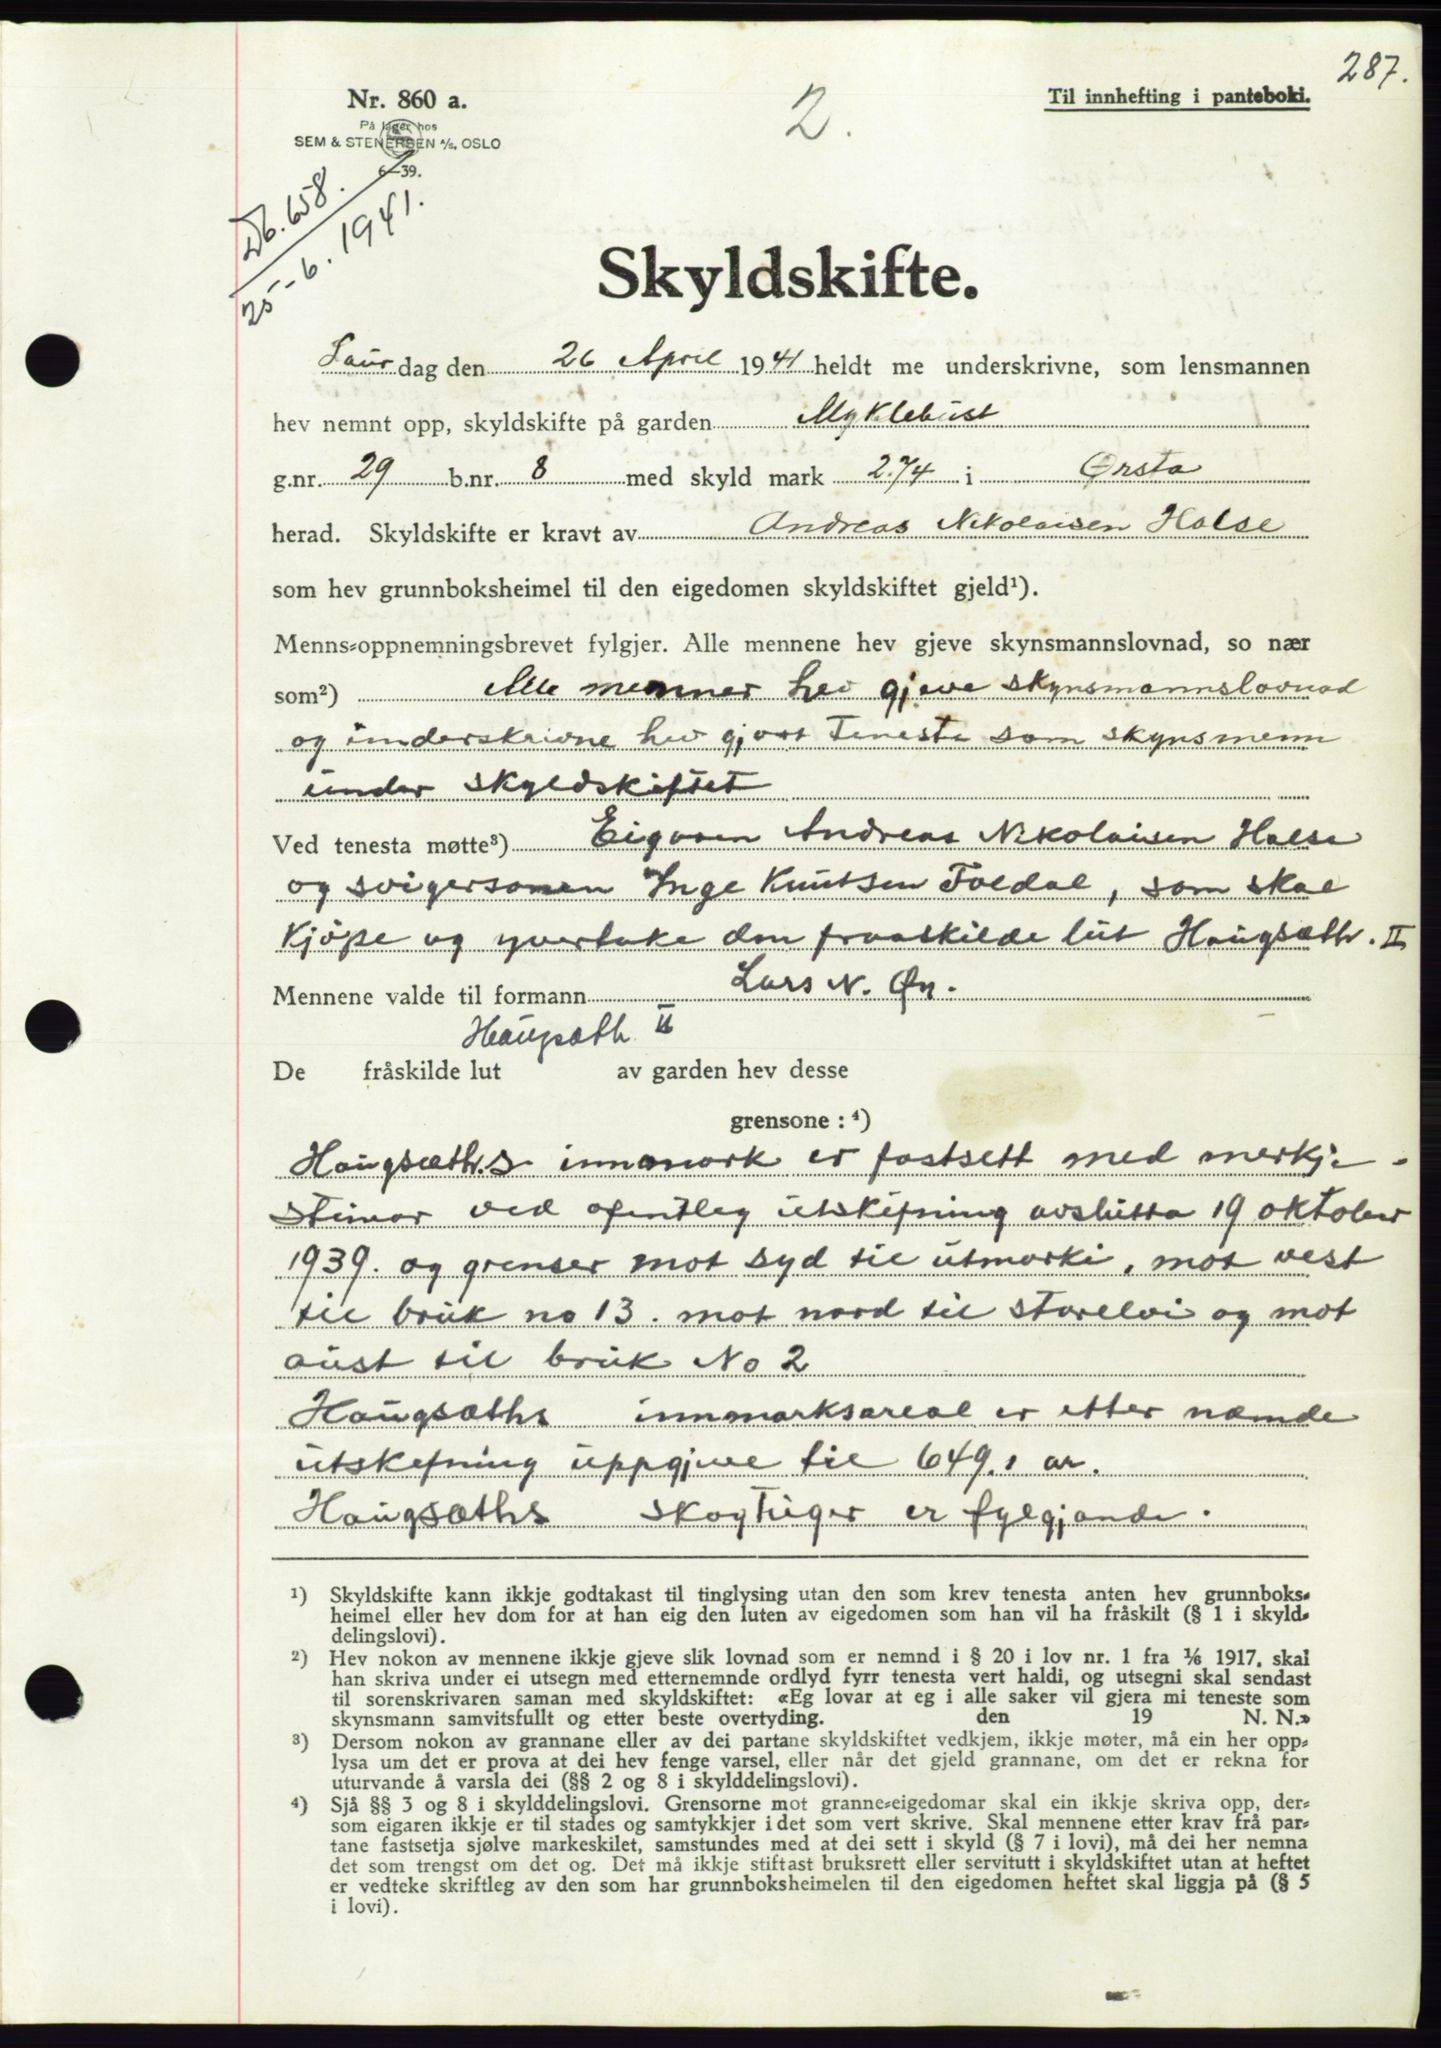 287.
Nr. 860 a.
2.
Til innhefting i panteboki.
På lager hos
SEM & STENERSEN A/S, OSLO
6—39.
Db. 658.
25-6. 1941.
Skyldskifte.
Laur dag den 26 April 1941 heldt me underskrivne, som lensmannen
hev nemnt opp, skyldskifte på garden Myklebust
g.nr. 29 b.nr. 8 med skyld mark 2.74 i Ørsta
herad. Skyldskifte er kravt av Andreas Nikolaisen Halse
som hev grunnboksheimel til den eigedomen skyldskiftet gjeld¹).
Menns-oppnemningsbrevet fylgjer. Alle mennene hev gjeve skynsmannslovnad, so nær
som²) Alle menner hev gjeve skynsmannslovnad
og underskrivne hev gjort Teneste som skynsmenn
under skyldskiftet
Ved tenesta møtte³) Eigaren Andreas Nikolaisen Halse
og svigersonen Inge Knutsen Foldal, som skal
kjöpe og yvertake den fraaskilde lut Haugsæth. II
Mennene valde til formann Lars N. Øy.
Haugsæth II
De fråskilde lut av garden hev desse
grensone : ⁴)
Haugsæth.s innmark er fastsett med merkje-
steinar ved ofentleg utskifning avslutta 19 oktober
1939. og grenser mot syd til utmarki, mot vest
til bruk no 13. mot nord til storelvi og mot
aust til bruk No 2
Haugsæths innmarksareal er etter næmde
utskefning uppgjeve til 649.1 ar.
Haugsæths skogteiger er fylgjande.
¹) Skyldskifte kann ikkje godtakast til tinglysing utan den som krev tenesta anten hev grunnboks-
heimel eller hev dom for at han eig den luten av eigedomen som han vil ha fråskilt (§ 1 i skyld-
delingslovi).
²) Hev nokon av mennene ikkje gjeve slik lovnad som er nemnd i § 20 i lov nr. 1 fra 1/6 1917, skal
han skriva under ei utsegn med etternemnde ordlyd fyrr tenesta vert haldi, og utsegni skal sendast
til sorenskrivaren saman med skyldskiftet: «Eg lovar at eg i alle saker vil gjera mi teneste som
skynsmann samvitsfullt og etter beste overtyding. den 19 N. N.»
³) Dersom nokon av grannane eller av dei partane skyldskiftet vedkjem, ikkje møter, må ein her opp-
lysa um det er prova at dei hev fenge varsel, eller når det gjeld grannane, om det er rekna for
uturvande å varsla dei (§§ 2 og 8 i skylddelingslovi).
⁴) Sjå §§ 3 og 8 i skylddelingslovi. Grensorne mot granne-eigedomar skal ein ikkje skriva opp, der-
som eigaren ikkje er til stades og samtykkjer i det som vert skrive. Skal mennene etter krav frå par-
tane fastsetja sjølve markeskilet, samstundes med at dei sett i skyld (§ 7 i lovi), må dei her nemna
det som trengst om det og. Det må ikkje stiftast bruksrett eller servitutt i skyldskiftet utan at heftet
er vedteke skriftleg av den som har grunnboksheimelen til den eigedomen heftet skal liggja på (§ 5
i lovi).